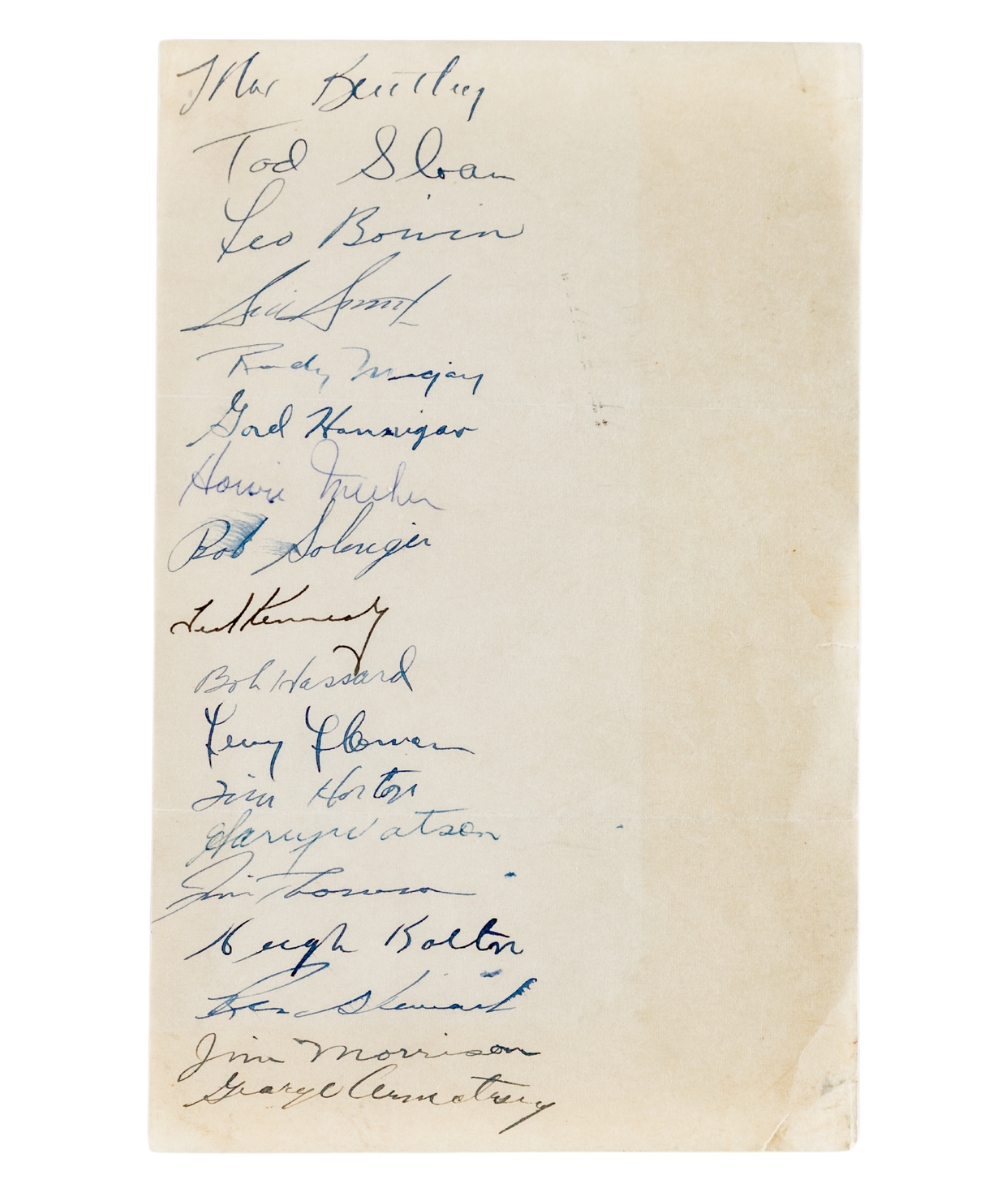 Max Bentley
Tod Sloan
Leo Boivin
Sid Smith
Rudy Migay
Gord Hannigan
Howie Meeker
Bob Solinger
Ted Kennedy
Bob Hassard
Ferny Flaman
Tim Horton
Harry Watson
Jim Thomson
Hugh Bolton
Ron Stewart
Jim Morrison
George Armstrong